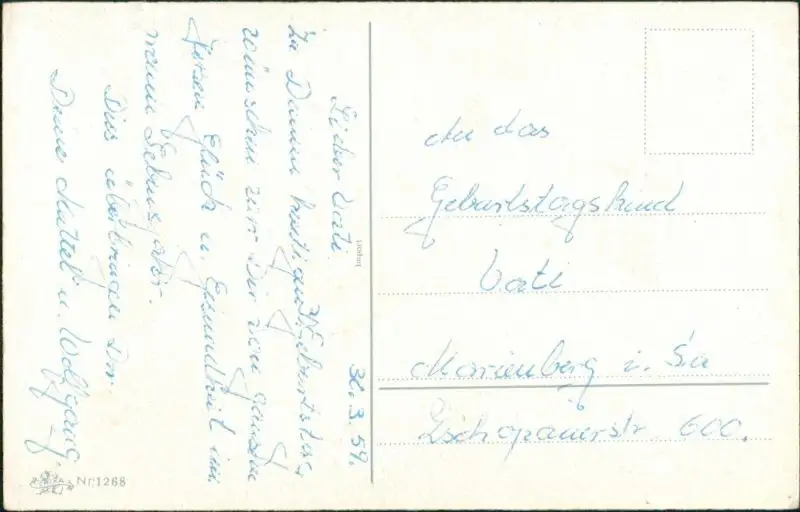 30.3.59.
Lieber Vati
Zu Deinem heutigen Geburtstag
wünschen wir Dir von ganzem
Herzen Glück u. Gesundheit im
neuen Lebensjahr.
Dies überbringen Dir
Deine Muttel u. Wolfgang.
An das
Geburtstagskind
Vati
Marienberg i. Sa
Zschopauerstr 600.
Nr. 1268